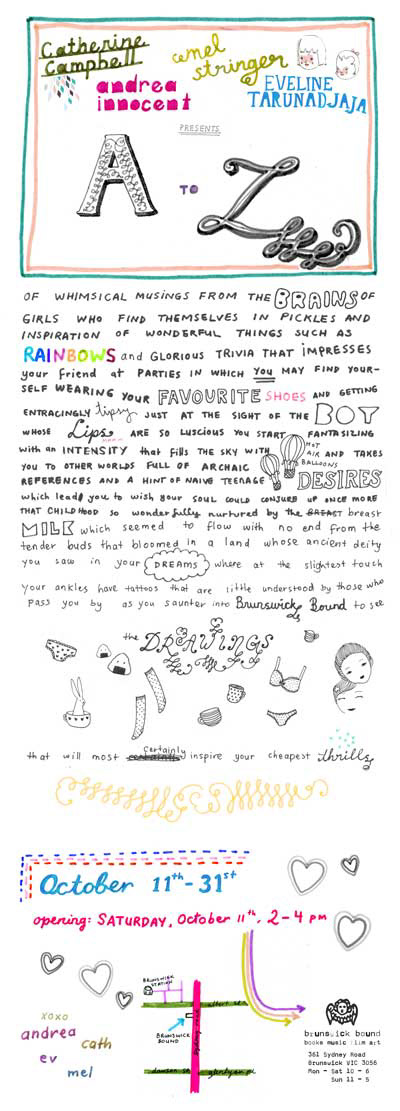 Catherine Campbell
mel stringer
andrea innocent
EVELINE TARUNADJAJA
PRESENTS
A TO Zzzzz
OF WHIMSICAL MUSINGS FROM THE BRAINS OF
GIRLS WHO FIND THEMSELVES IN PICKLES AND
INSPIRATION OF WONDERFUL THINGS SUCH AS
RAINBOWS and GLORIOUS TRIVIA THAT IMPRESSES
your friend at PARTIES IN WHICH YOU MAY FIND YOUR-
SELF WEARING YOUR FAVOURITE SHOES AND GETTING
ENTRACINGLY tipsy JUST AT THE SIGHT OF THE BOY
WHOSE Lips ARE SO LUSCIOUS YOU START FANTASIZING
with an INTENSITY that fills THE SKY WITH HOT AIR BALLOONS AND TAKES
YOU TO OTHER WORLDS FULL OF ARCHAIC
REFERENCES AND A HINT OF NAIVE TEENAGE DESIRES
which leads you to wish your SOUL COULD CONJURE UP ONCE MORE
THAT CHILDHOOD SO wonderfully nurtured by the BREAST breast
MILK which seemed to flow with no end from the
tender buds that bloomed in a land whose ancient deity
you saw in your DREAMS where at the slightest touch
your ankles have tattoos that are little understood by those who
pass you by as you saunter into Brunswick Bound to see
the DRAWINGS
that will most certainly inspire your cheapest thrills
October 11th - 31st
opening: SATURDAY, October 11th, 2-4 pm
BRUNSWICK STATION
albert st
BRUNSWICK BOUND
sydney road
dawson st
glenlyon rd
xoxo
andrea
cath
ev
mel
brunswick bound
books music film art
361 Sydney Road
Brunswick VIC 3056
Mon - Sat 10 - 6
Sun 11 - 5